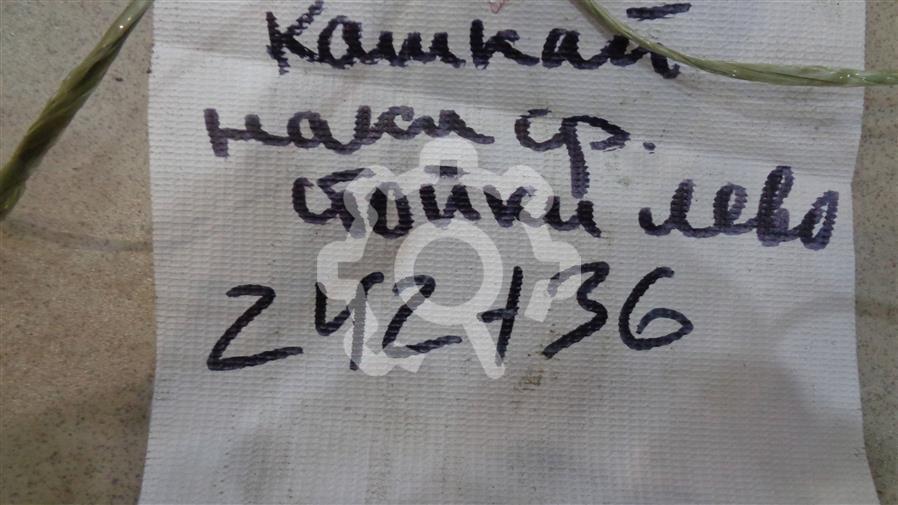 Кашкай
накл ср.
стойки лево
242736